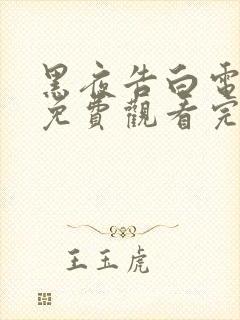 黑夜告白電
免費觀看完
王玉虎